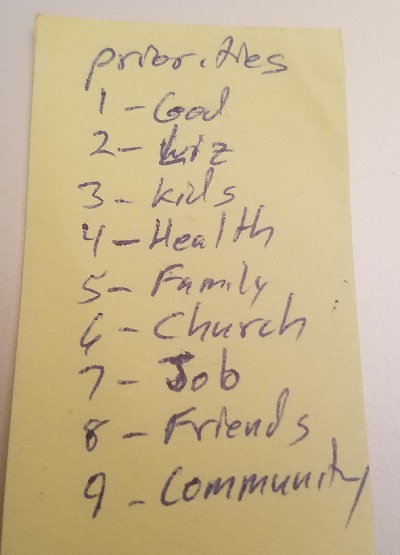 priorities
1 - God
2 - Liz
3 - kids
4 - Health
5 - Family
6 - Church
7 - Job
8 - Friends
9 - Community